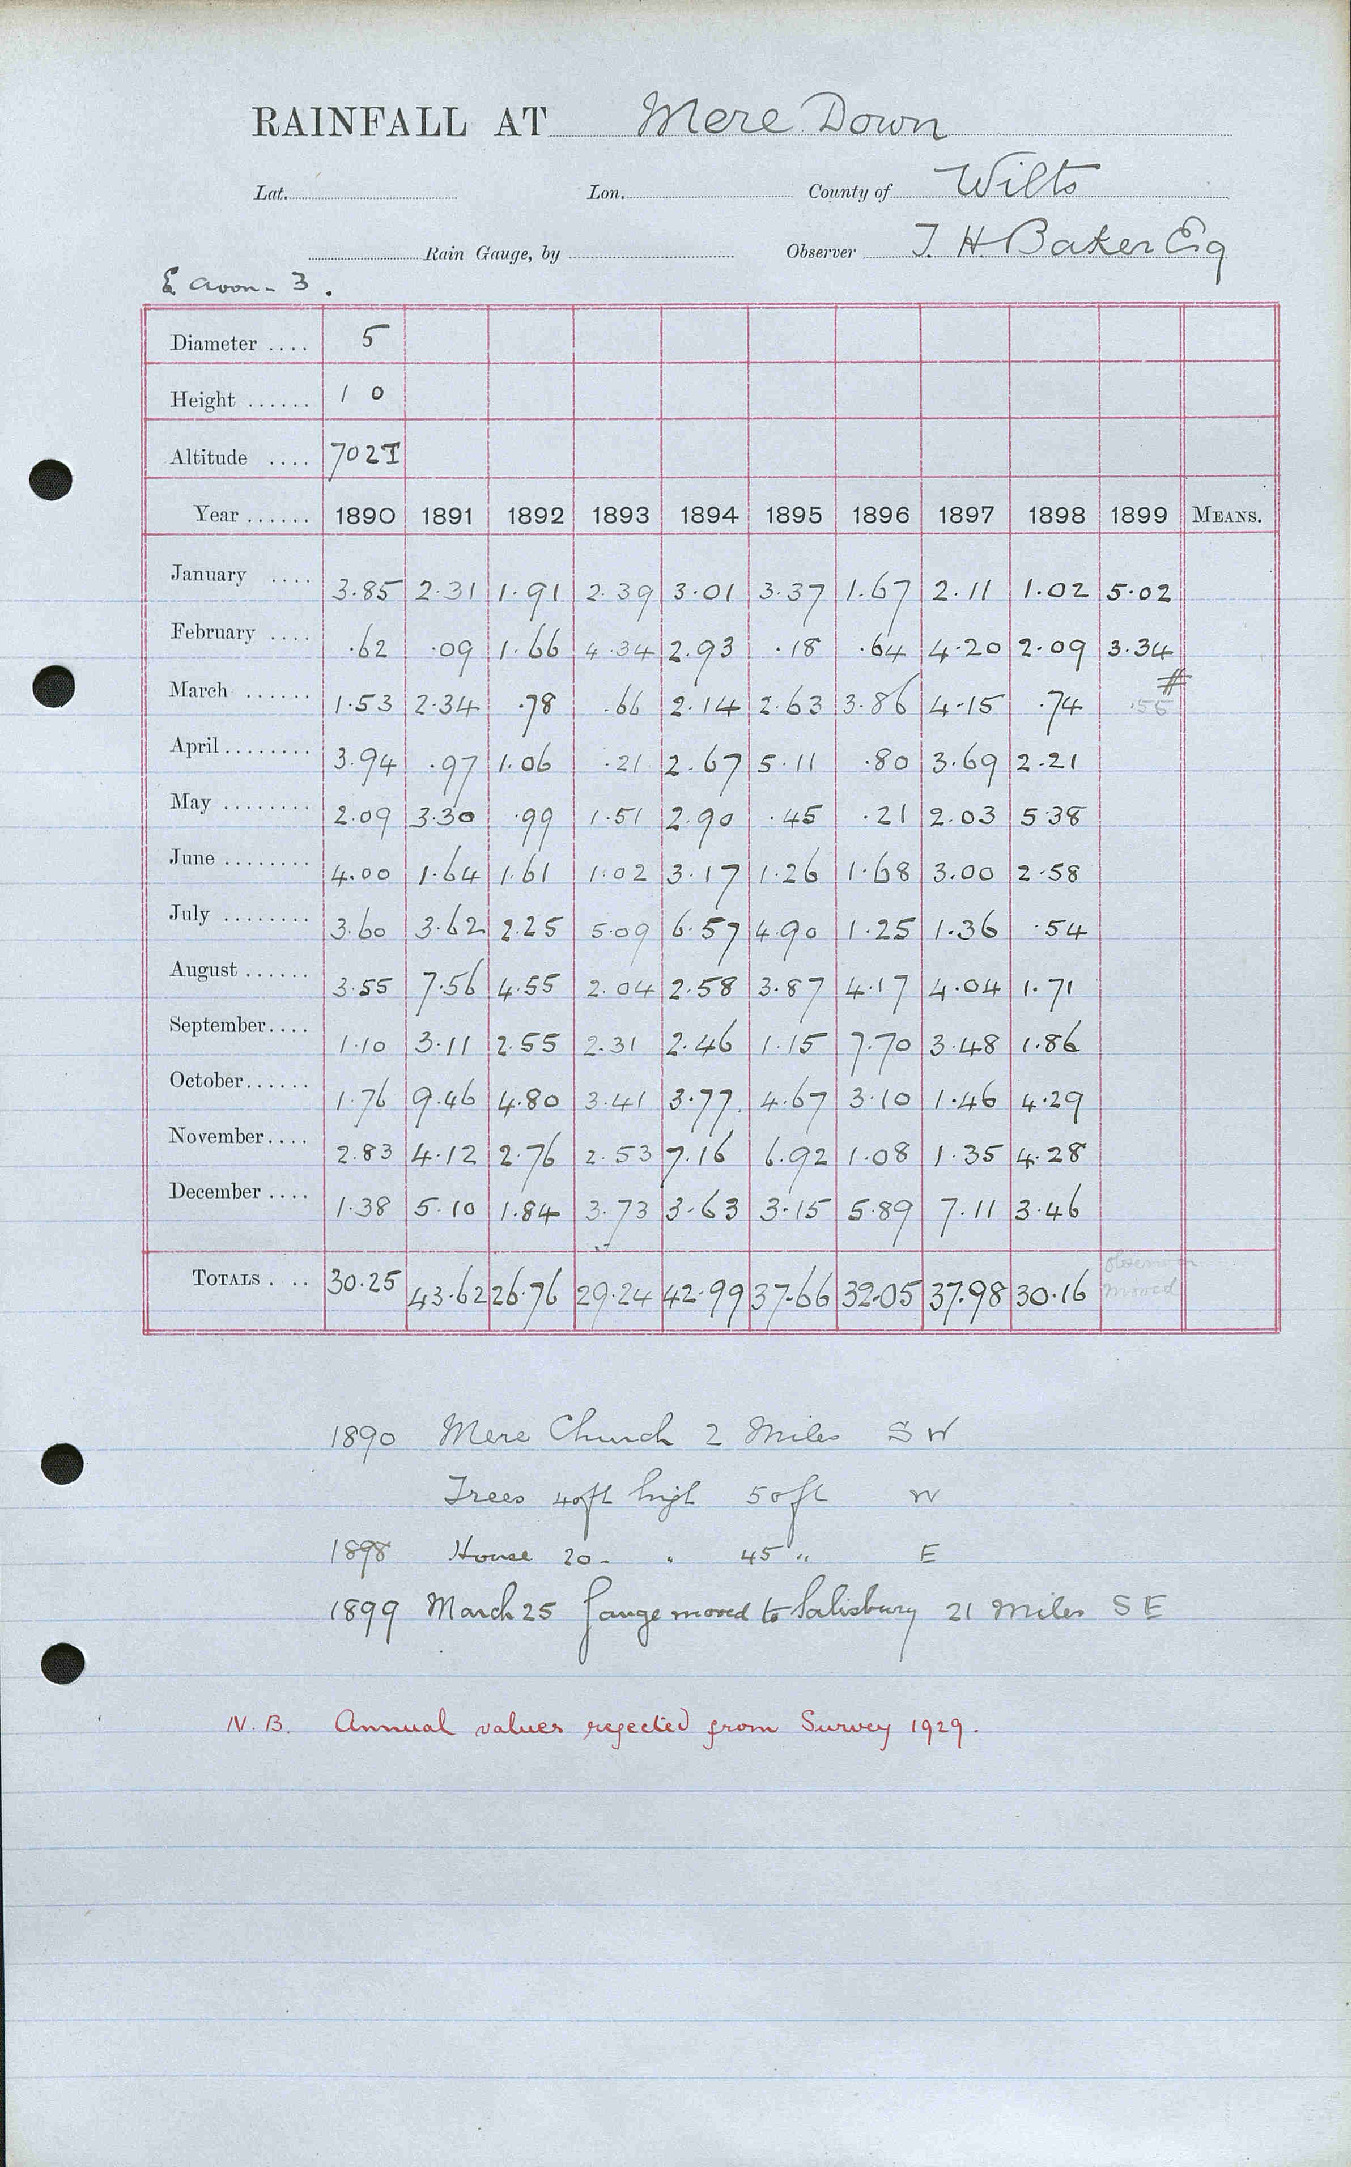 RAINFALL AT Mere Down
Lat. Lon. County of Wilts
Rain Gauge, by Observer T. H. Baker Esq
E Avon - 3.
Diameter .... 5
Height ...... 1 0
Altitude .... 702T
Year ...... 1890 1891 1892 1893 1894 1895 1896 1897 1898 1899 MEANS.
January .... 3.85 2.31 1.91 2.39 3.01 3.37 1.67 2.11 1.02 5.02
February .... .62 .09 1.66 4.34 2.93 .18 .64 4.20 2.09 3.34
March ...... 1.53 2.34 .78 .66 2.14 2.63 3.86 4.15 .74 .56 #
April ........ 3.94 .97 1.06 .21 2.67 5.11 .80 3.69 2.21
May ........ 2.09 3.30 .99 1.51 2.90 .45 .21 2.03 5.38
June ........ 4.00 1.64 1.61 1.02 3.17 1.26 1.68 3.00 2.58
July ........ 3.60 3.62 2.25 5.09 6.57 4.90 1.25 1.36 .54
August ...... 3.55 7.56 4.55 2.04 2.58 3.87 4.17 4.04 1.71
September.... 1.10 3.11 2.55 2.31 2.46 1.15 7.70 3.48 1.86
October...... 1.76 9.46 4.80 3.41 3.77 4.67 3.10 1.46 4.29
November.... 2.83 4.12 2.76 2.53 7.16 6.92 1.08 1.35 4.28
December .... 1.38 5.10 1.84 3.73 3.63 3.15 5.89 7.11 3.46
TOTALS . .. 30.25 43.62 26.76 29.24 42.99 37.66 32.05 37.98 30.16 moved
1890 Mere Church 2 Miles S W
Trees 40ft high 50ft W
1898 House 20 - " 45 " E
1899 March 25 Gauge moved to Salisbury 21 Miles S E
N.B. Annual values rejected from Survey 1929.